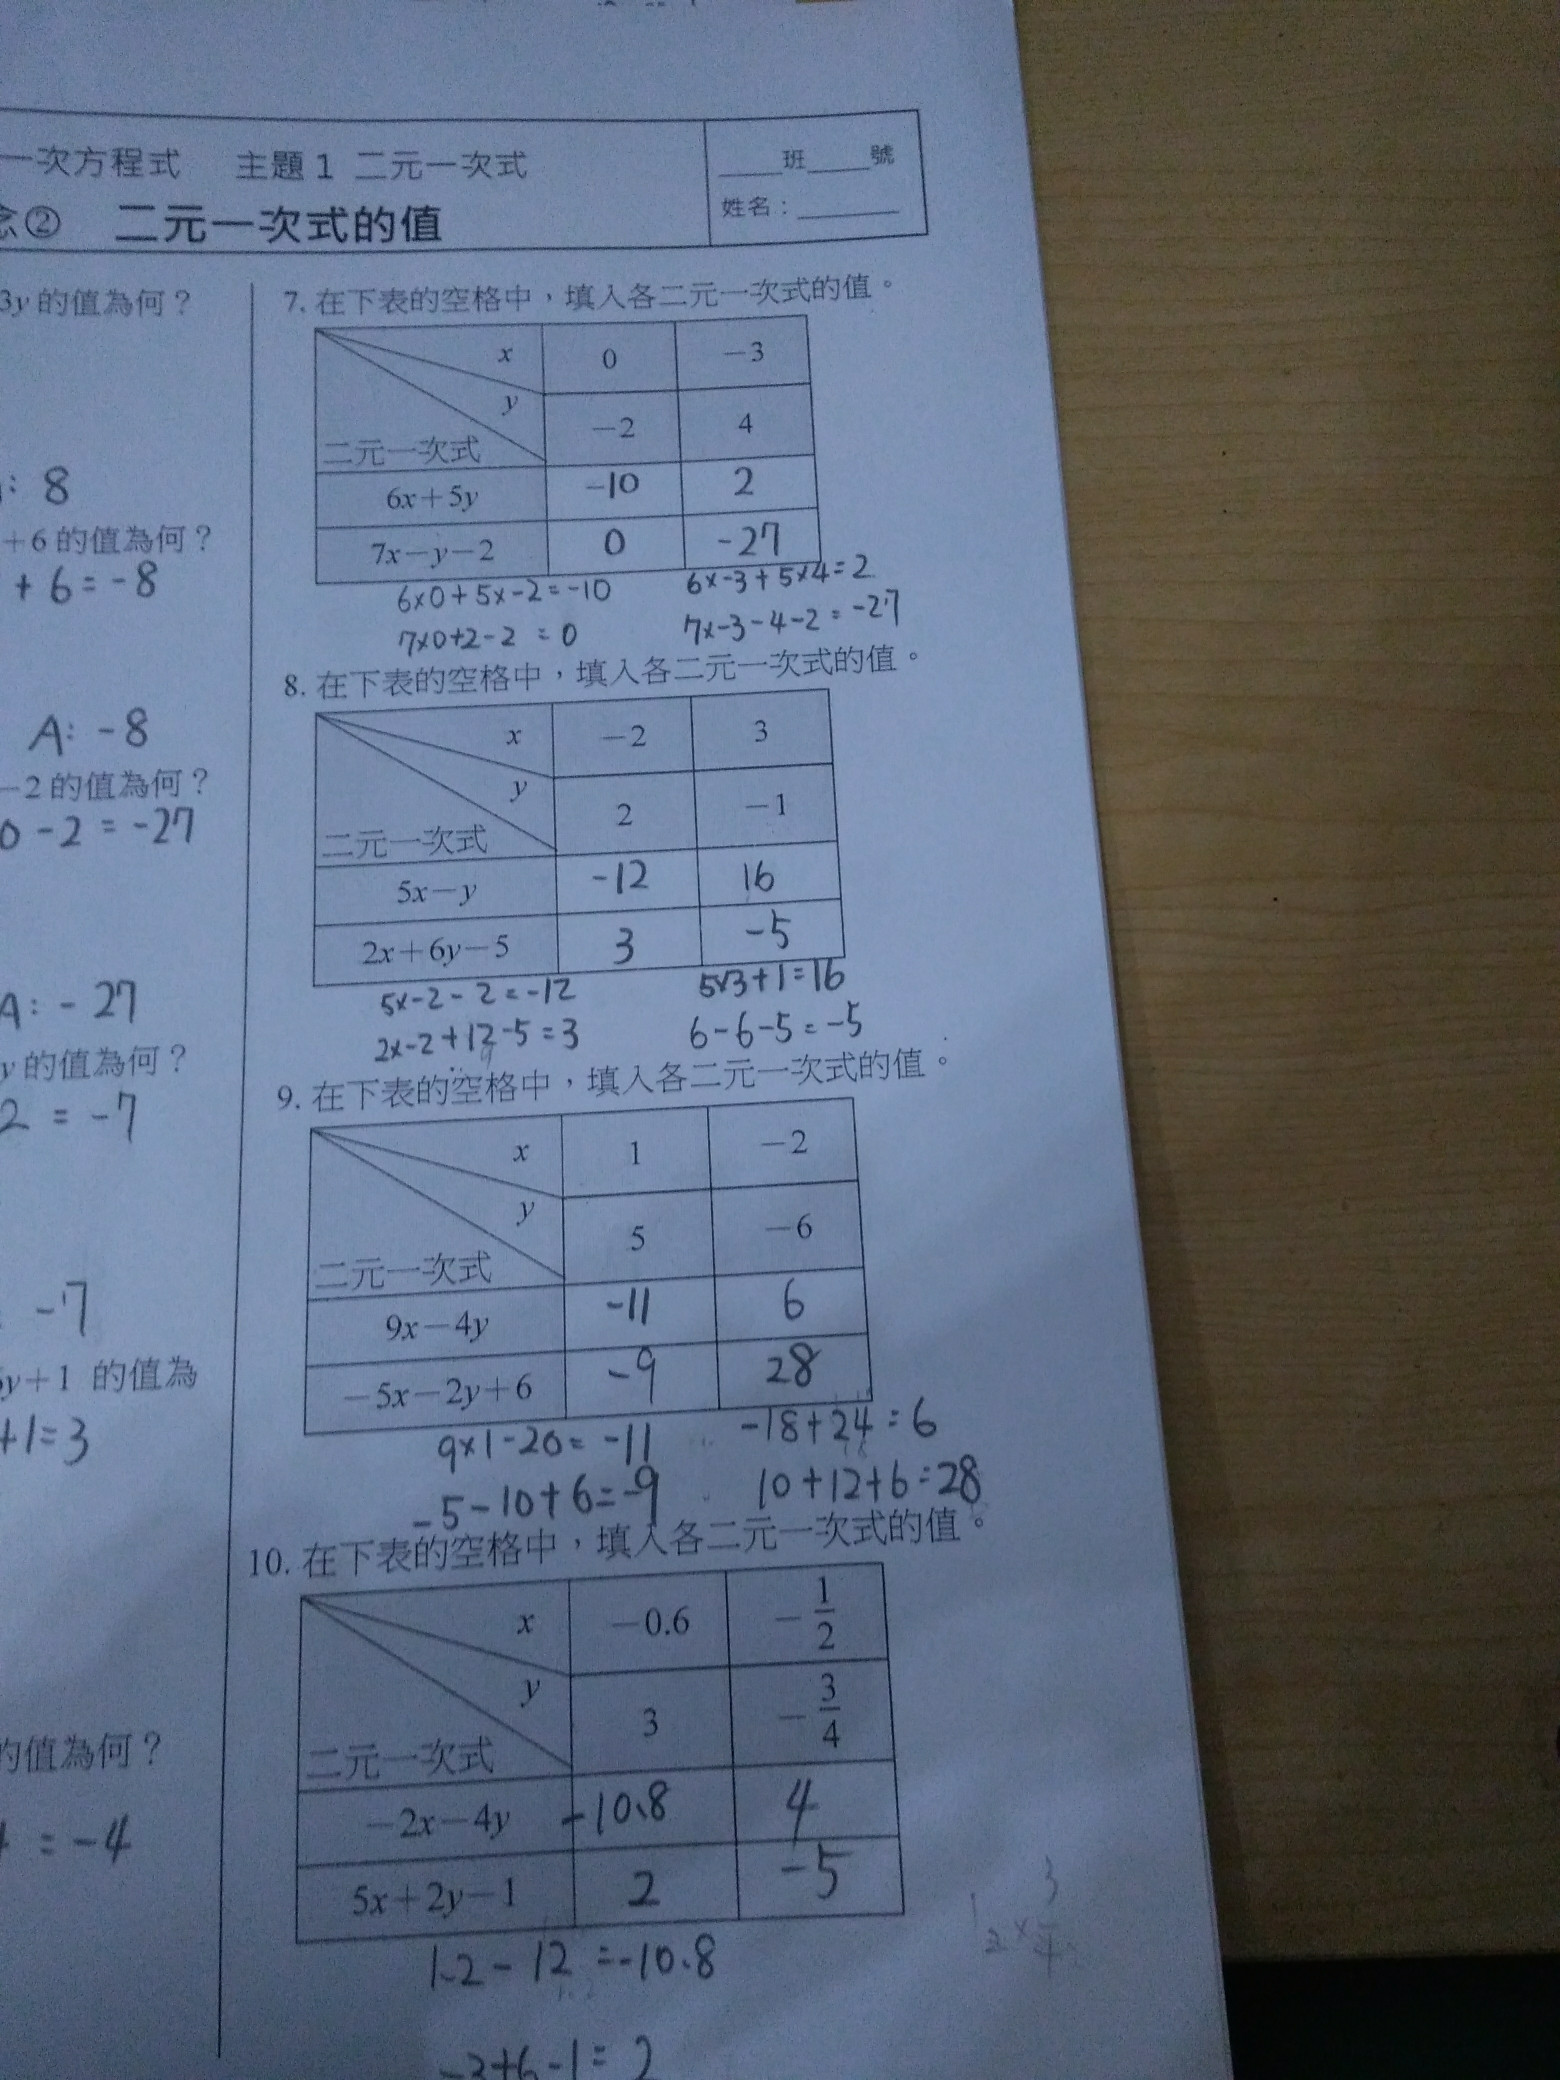 一次方程式 主題1 二元一次式
班 號
姓名：
念② 二元一次式的值
3y 的值為何？
: 8
+6 的值為何？
+ 6 = -8
A: -8
-2 的值為何？
0 - 2 = -27
A: -27
y 的值為何？
2 = -7
-7
y+1 的值為
+1=3
的值為何？
= -4
7. 在下表的空格中，填入各二元一次式的值。
x 0 -3
y -2 4
二元一次式
6x+5y -10 2
7x-y-2 0 -27
6x0+5x-2=-10 6x-3+5x4=2
7x0+2-2 = 0 7x-3-4-2=-27
8. 在下表的空格中，填入各二元一次式的值。
x -2 3
y 2 -1
二元一次式
5x-y -12 16
2x+6y-5 3 -5
5x-2-2=-12 5x3+1=16
2x-2+12-5=3 6-6-5=-5
9. 在下表的空格中，填入各二元一次式的值。
x 1 -2
y 5 -6
二元一次式
9x-4y -11 6
-5x-2y+6 -9 28
9x1-20=-11 -18+24=6
-5-10+6=-9 10+12+6=28
10. 在下表的空格中，填入各二元一次式的值。
x -0.6 -1/2
y 3 -3/4
二元一次式
-2x-4y -10.8 4
5x+2y-1 2 -5
1.2-12=-10.8
-3+6-1=2